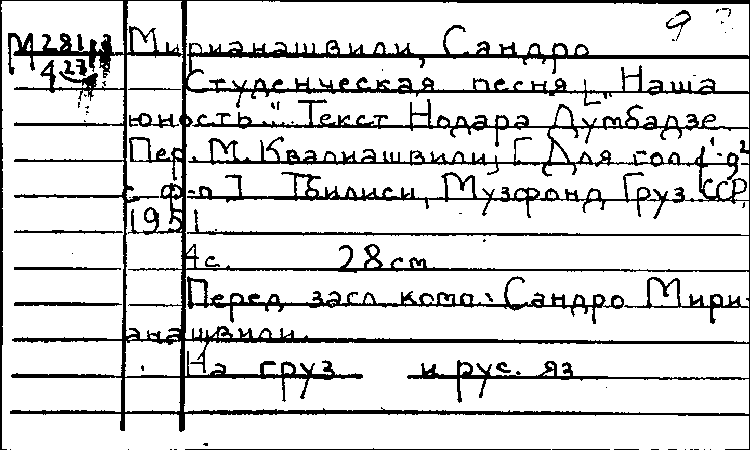 М 281
Мирианашвили, Сандро
427
Студенческая песня „Наша
юность." Текст Нодара Думбадзе
Пер. М. Квалиашвили, [Для гол.
с ф-п] Тбилиси, Музфонд Груз ССР,
1951
4с. 28 см
Перед засл. комп: Сандро Мири-
анашвили.
На груз и рус. яз